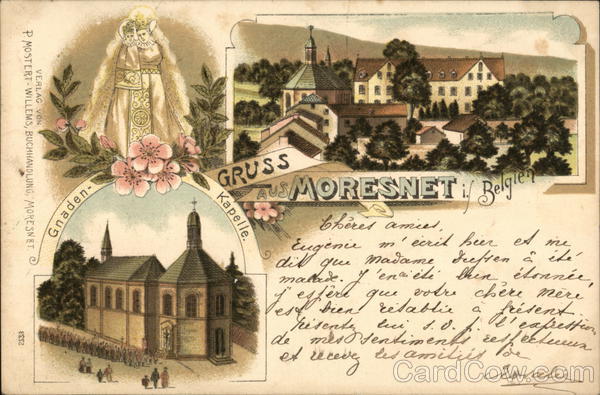 VERLAG VON
P. MOSTERT-WILLEMS, BUCHHANDLUNG, MORESNET.
2338
Gnaden-Kapelle.
GRUSS
AUS MORESNET i/ Belgien
Chères amies,
Eugénie m'écrit hier et me
dit que madame a été
malade. J'en ai été bien étonnée,
j'espère que votre chère mère
est bien rétablie à présent
présentez lui s.v.p. l'expression
de mes sentiments respectueux
et recevez les amitiés de
CardCow.com